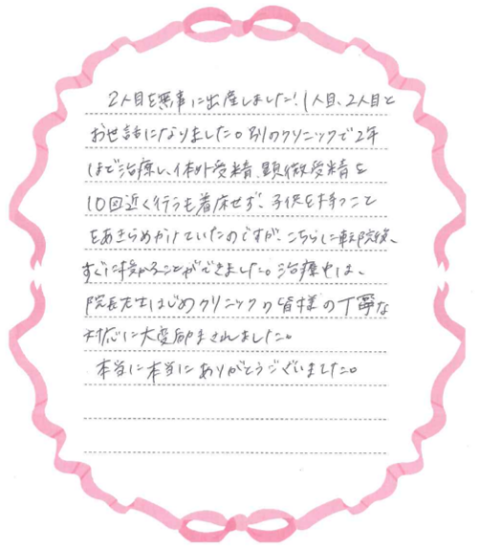 2人目を無事に出産しました!1人目、2人目と
お世話になりました。別のクリニックで2年
ほど治療し、体外受精、顕微受精を
10回近く行うも着床せず、子供を持つこと
をあきらめかけていたのですが、こちらに転院後、
すぐに授かることができました。治療中は、
院長先生はじめクリニックの皆様の丁寧な
対応に大変励まされました。
本当に本当にありがとうございました。